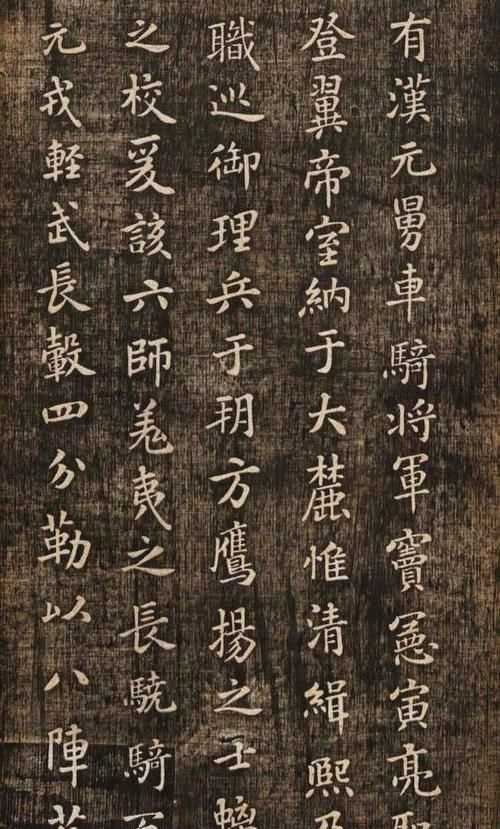 有漢元舅車騎将軍竇憲寅亮
登翼帝室納于大麓惟清緝熙乃
職巡御理兵于朔方鷹揚之士螭
之校爰該六師羌夷之長驍騎
元戎軽武長轂四分勒以八陣